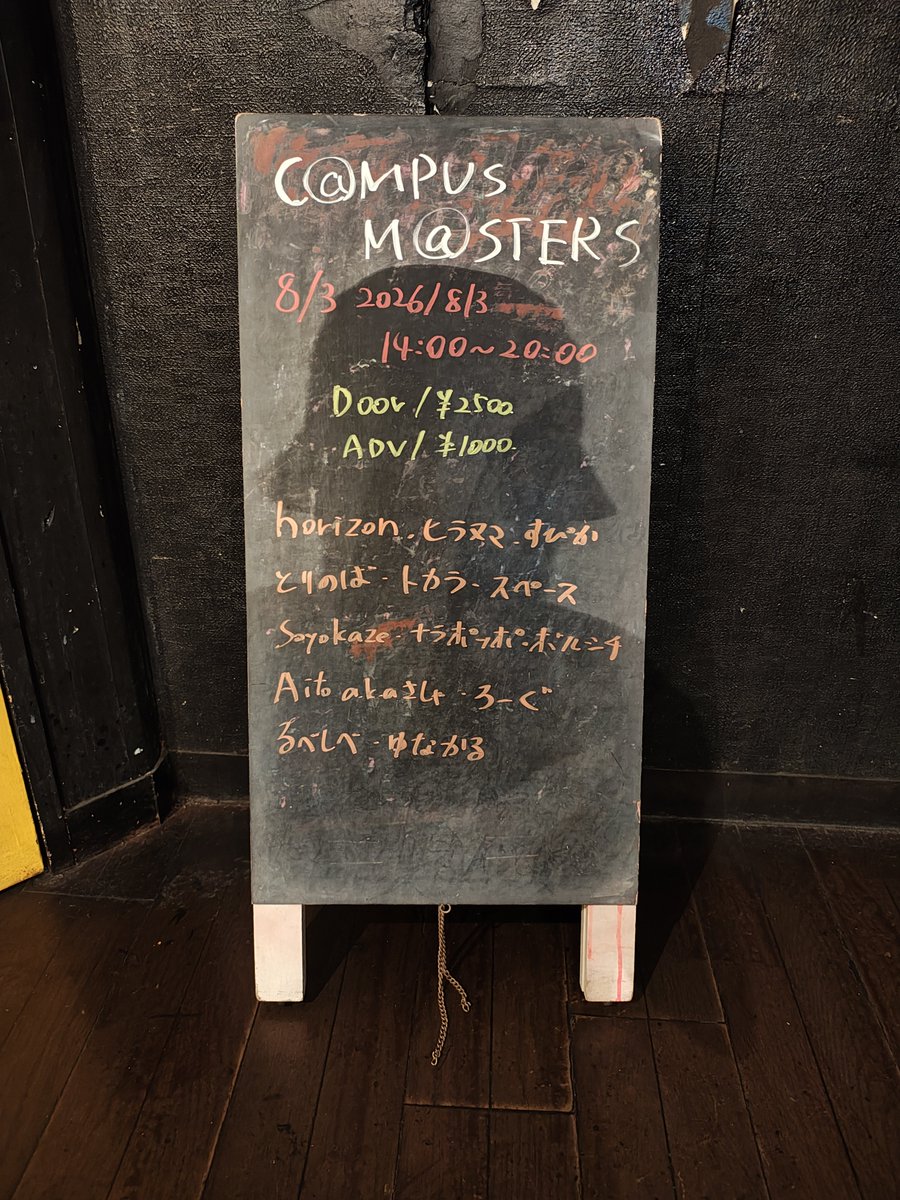 C@MPUS
M@STERS
8/3 2026/8/3
14:00~20:00
Door/¥2500
ADV/¥1000
horizon.ヒラヌマ.すぴか
とりのば・トカラ・スペース
Soyokaze・ナラポッポ・ボルシチ
Aito aka きしゃ・ろーぐ
るべしべ・ゆなかる